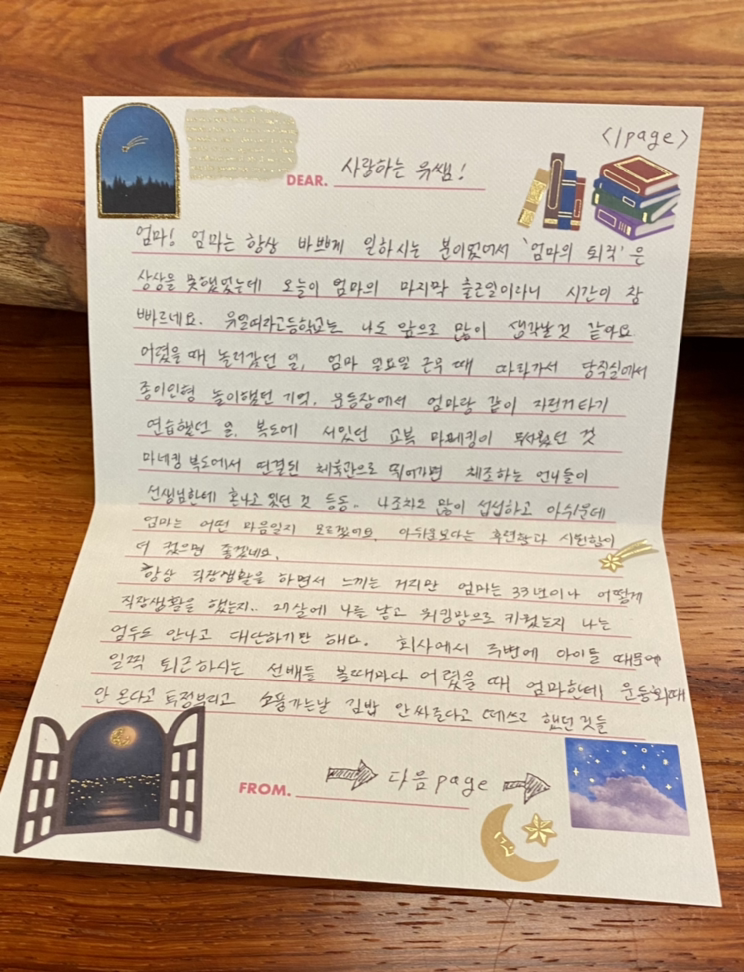 <1page>
DEAR. 사랑하는 유쌤!
엄마! 엄마는 항상 바쁘게 일하시는 분이었어서 '엄마의 퇴직'은
상상을 못했었는데 오늘이 엄마의 마지막 출근일이라니 시간이 참
빠르네요. 유일여자고등학교는 나도 앞으로 많이 생각날 것 같아요
어렸을 때 놀러갔던 일, 엄마 일요일 근무 때 따라가서 당직실에서
종이인형 놀이했던 기억, 운동장에서 엄마랑 같이 자전거타기
연습했던 일, 복도에 서있던 교복 마네킹이 무서웠던 것
마네킹 복도에서 연결된 체육관으로 뛰어가면 체조하는 언니들이
선생님한테 혼나고 있던 것 등등.. 나조차도 많이 섭섭하고 아쉬운데
엄마는 어떤 마음일지 모르겠어요. 아쉬움보다는 후련함과 시원함이
더 컸으면 좋겠네요.
항상 직장생활을 하면서 느끼는 거지만 엄마는 33년이나 어떻게
직장생활을 했는지.. 27살에 나를 낳고 워킹맘으로 키웠는지 나는
엄두도 안나고 대단하기만 해다. 회사에서 주변에 아이들 때문에
일찍 퇴근하시는 선배들 볼때마다 어렸을 때 엄마한테 운동회때
안 온다고 투정부리고 소풍가는날 김밥 안싸준다고 떼쓰고 했던 것들
FROM. 다음page